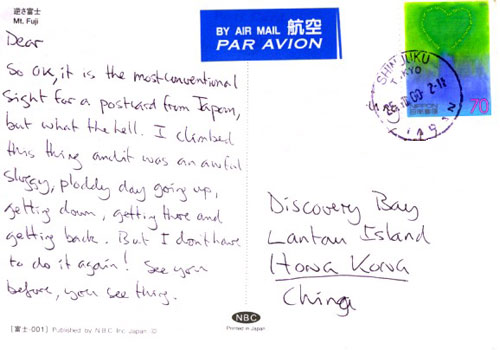 逆さ富士
Mt. Fuji
BY AIR MAIL 航空
PAR AVION
Dear
So OK, it is the most conventional
sight for a postcard from Japan,
but what the hell. I climbed
this thing and it was an awful
sluggy, ploddy day going up,
getting down, getting there and
getting back. But I don't have
to do it again! See you
before, you see this.
SHINJUKU
TOKYO
NIPPON
70
Discovery Bay
Lantau Island
Hong Kong
China
NBC
Printed in Japan
[富士-001] Published by N.B.C. Inc. Japan